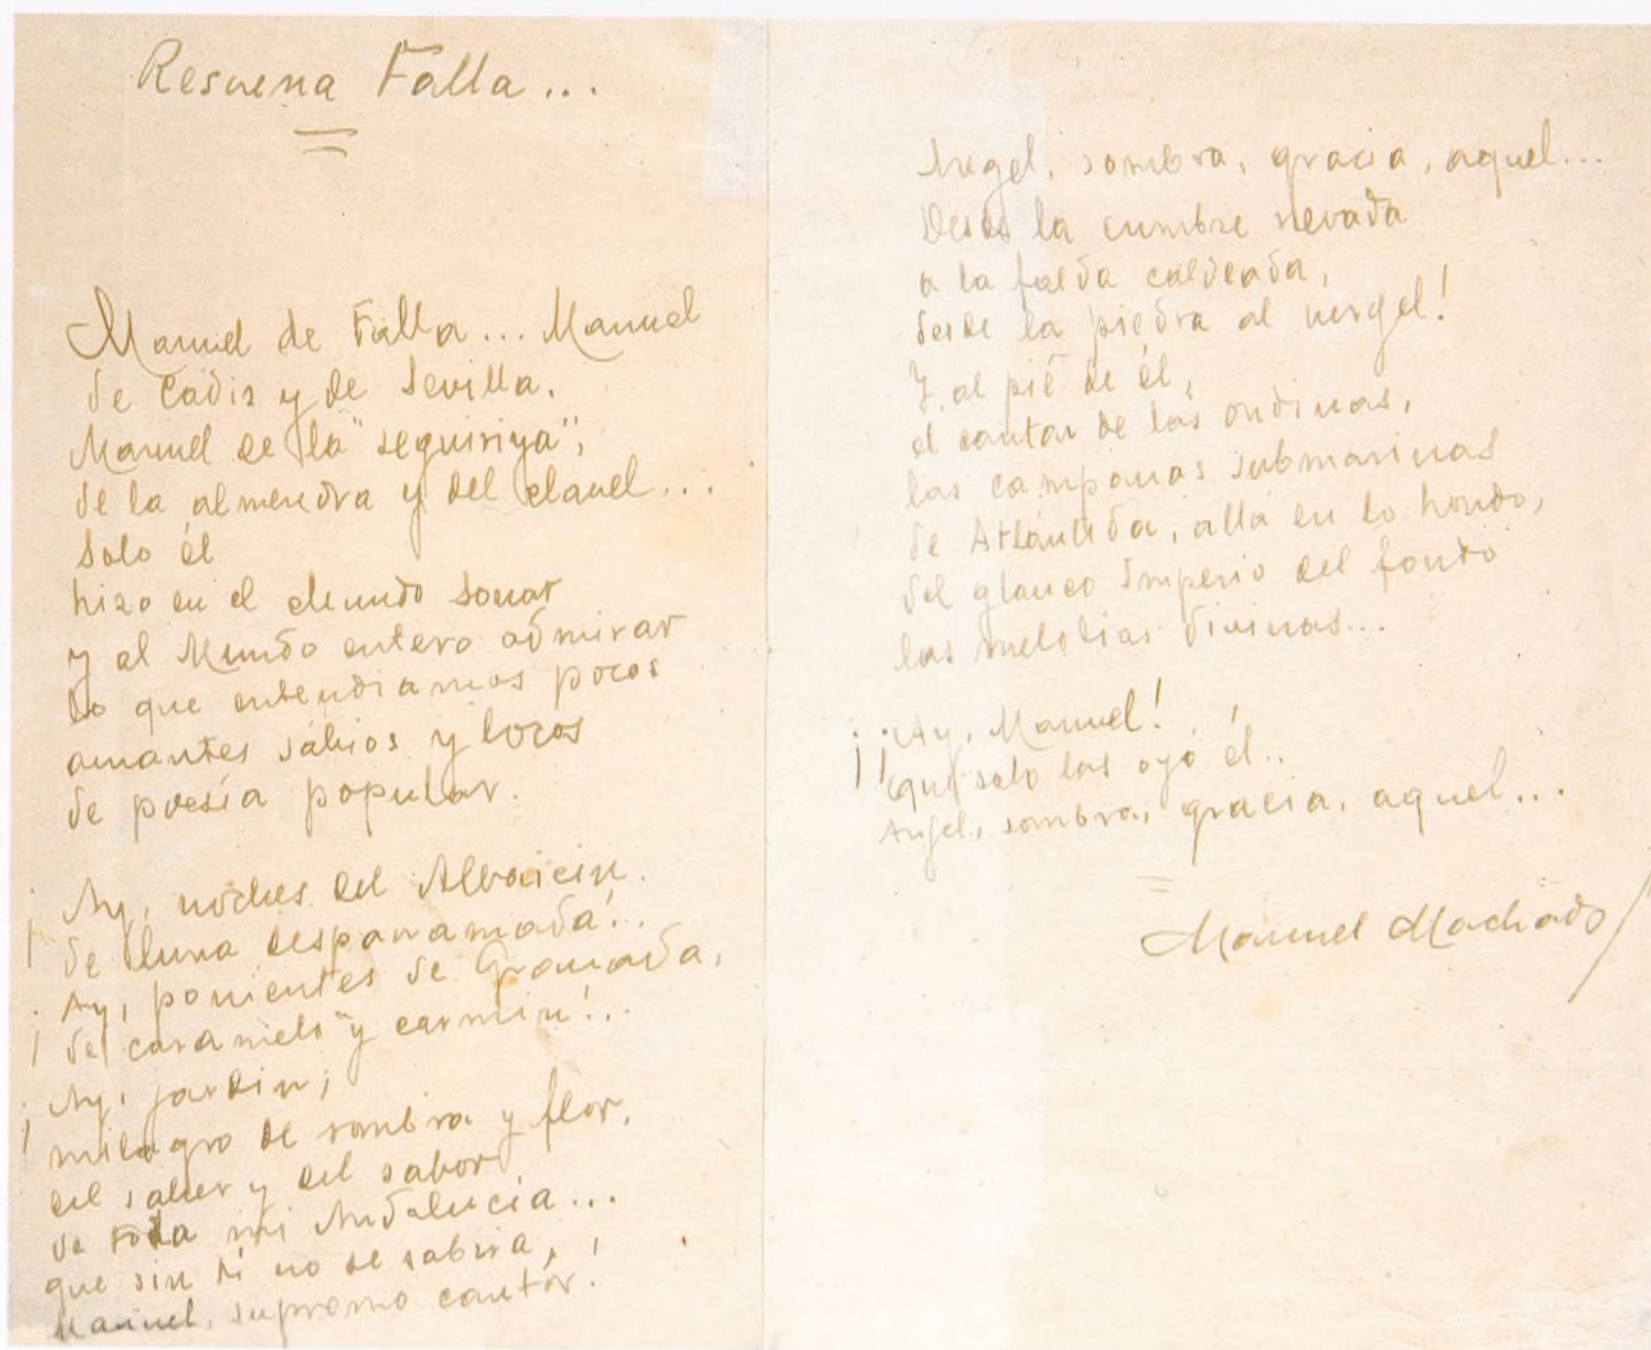 Resuena Falla...
Manuel de Falla... Manuel
de Cádiz y de Sevilla.
Manuel de la "seguiriya",
de la almendra y del clavel...
Solo él
hizo en el Mundo sonar
y al Mundo entero admirar
lo que entendiamos pocos
amantes sabios y locos
de poesía popular.
¡Ay, noches del Albaicin.
de luna desparramada!..
¡Ay, ponientes de Granada,
de caramelo y carmin!...
¡Ay, jardin;
milagro de sombra y flor,
del saber y del sabor
de toda mi Andalucia...
que sin ti no se sabria,
Manuel, supremo cantór!
Angel, sombra, gracia, aquel...
Desde la cumbre nevada
a la falda caldeada,
desde la piedra al vergel!
Y, al pié de él,
el cantar de las ondinas,
las campanas submarinas
de Atlántida, allá en lo hondo,
del glauco Imperio del fondo
las melodias divinas...
¡Ay, Manuel!
¡Que solo las oyó él!..
Angel, sombra, gracia, aquel...
Manuel Machado